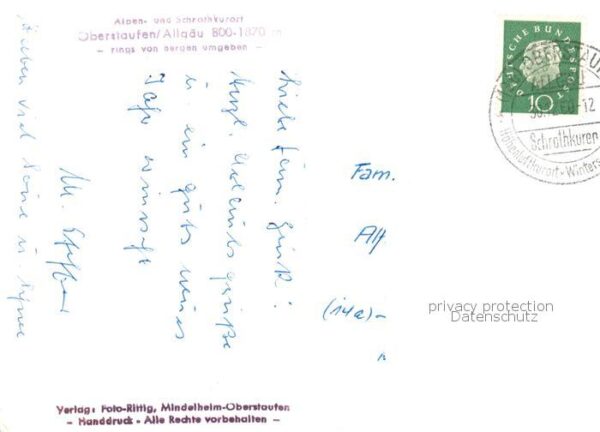 Alpen- und Schrothkurort
Oberstaufen/Allgäu 800-1870 m
– rings von Bergen umgeben –
DEUTSCHE BUNDESPOST
10
OBERSTAUFEN
-12
Schrothkuren
Höhenluftkurort-Winters
Liebe Fam.
Herzl. Weihnachtsgrüße
u. ein gutes neues
Jahr wünscht
M.
haben viel Sonne u. Schnee
Fam.
Alf
(14a)-
privacy protection
Datenschutz
Verlag: Foto-Rittig, Mindelheim-Oberstaufen
– Handdruck - Alle Rechte vorbehalten –